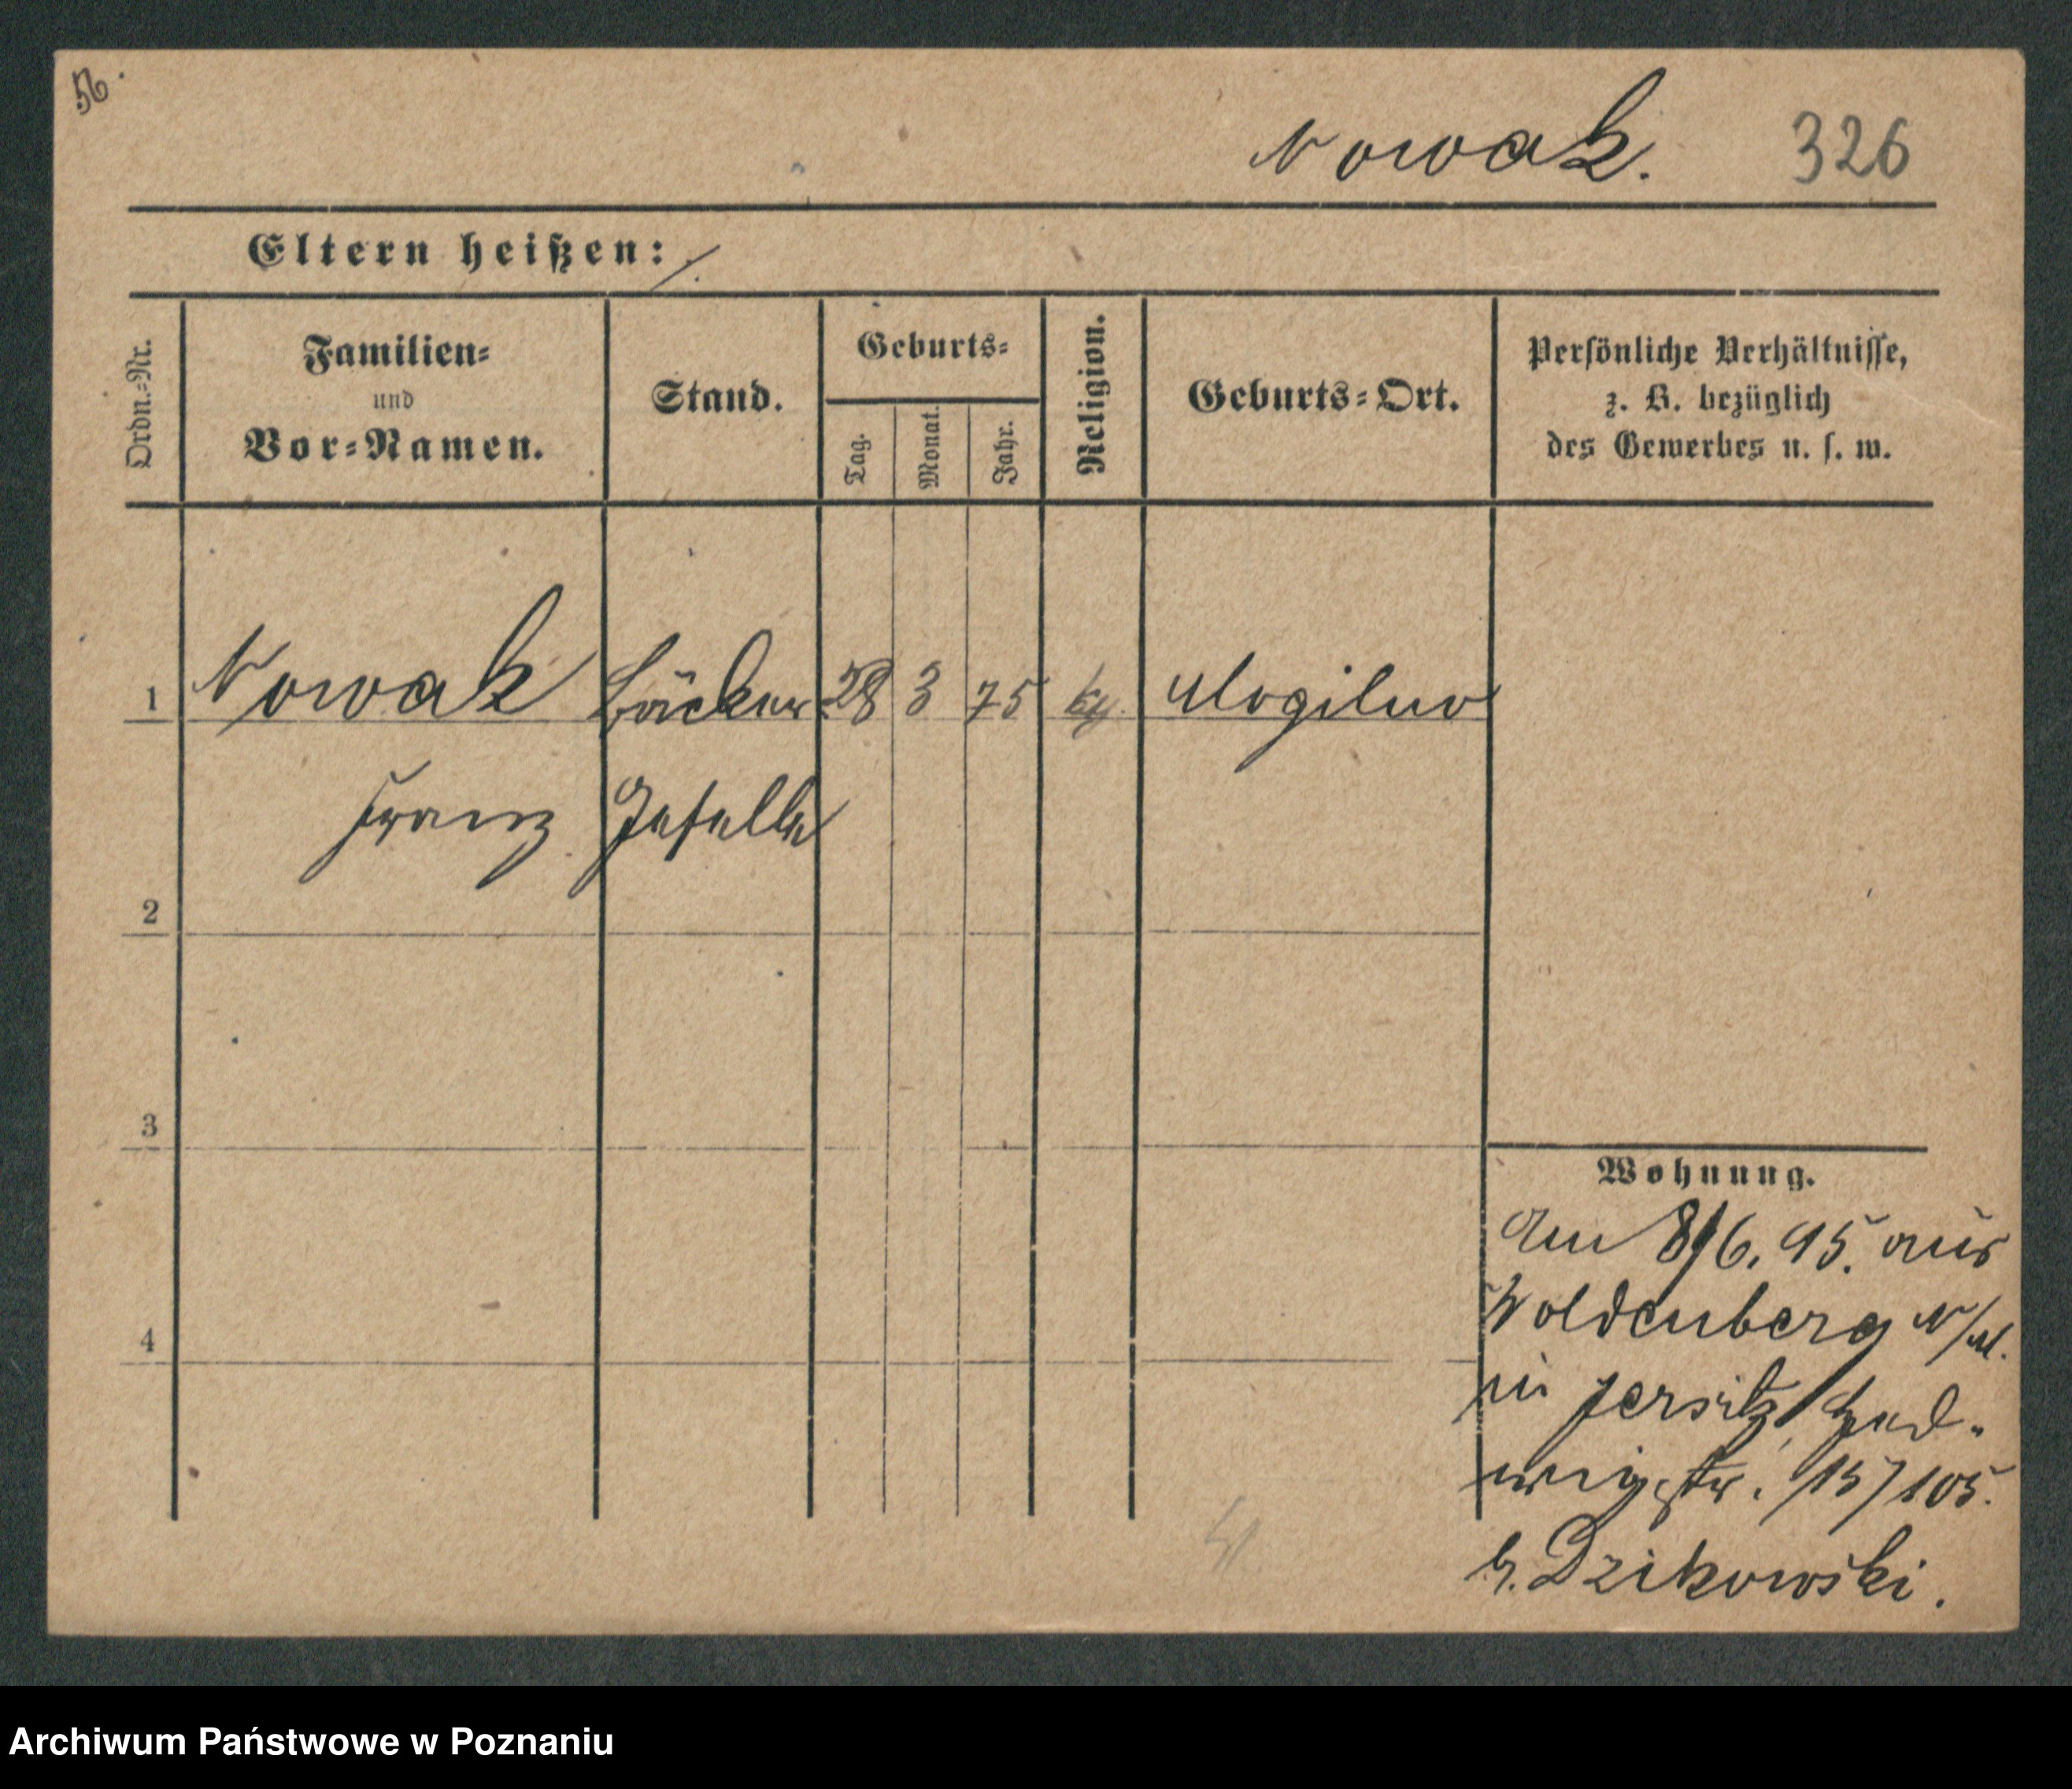 56.
Nowak. 326
Eltern heißen: /.
Ordn.-Nr.
Familien-
und
Vor-Namen.
Stand.
Geburts-
Tag.
Monat.
Jahr.
Religion.
Geburts-Ort.
Persönliche Verhältnisse,
z. B. bezüglich
des Gewerbes u. s. w.
1 Nowak Bäcker 28 3 75 kth. Mogilno
Franz Geselle
2
3
4
Wohnung.
Am 8/6. 95. aus
Woldenberg N/M.
in Jersitz, Hed-
wigstr. 15/105.
b. Dzikowski.
Archiwum Państwowe w Poznaniu